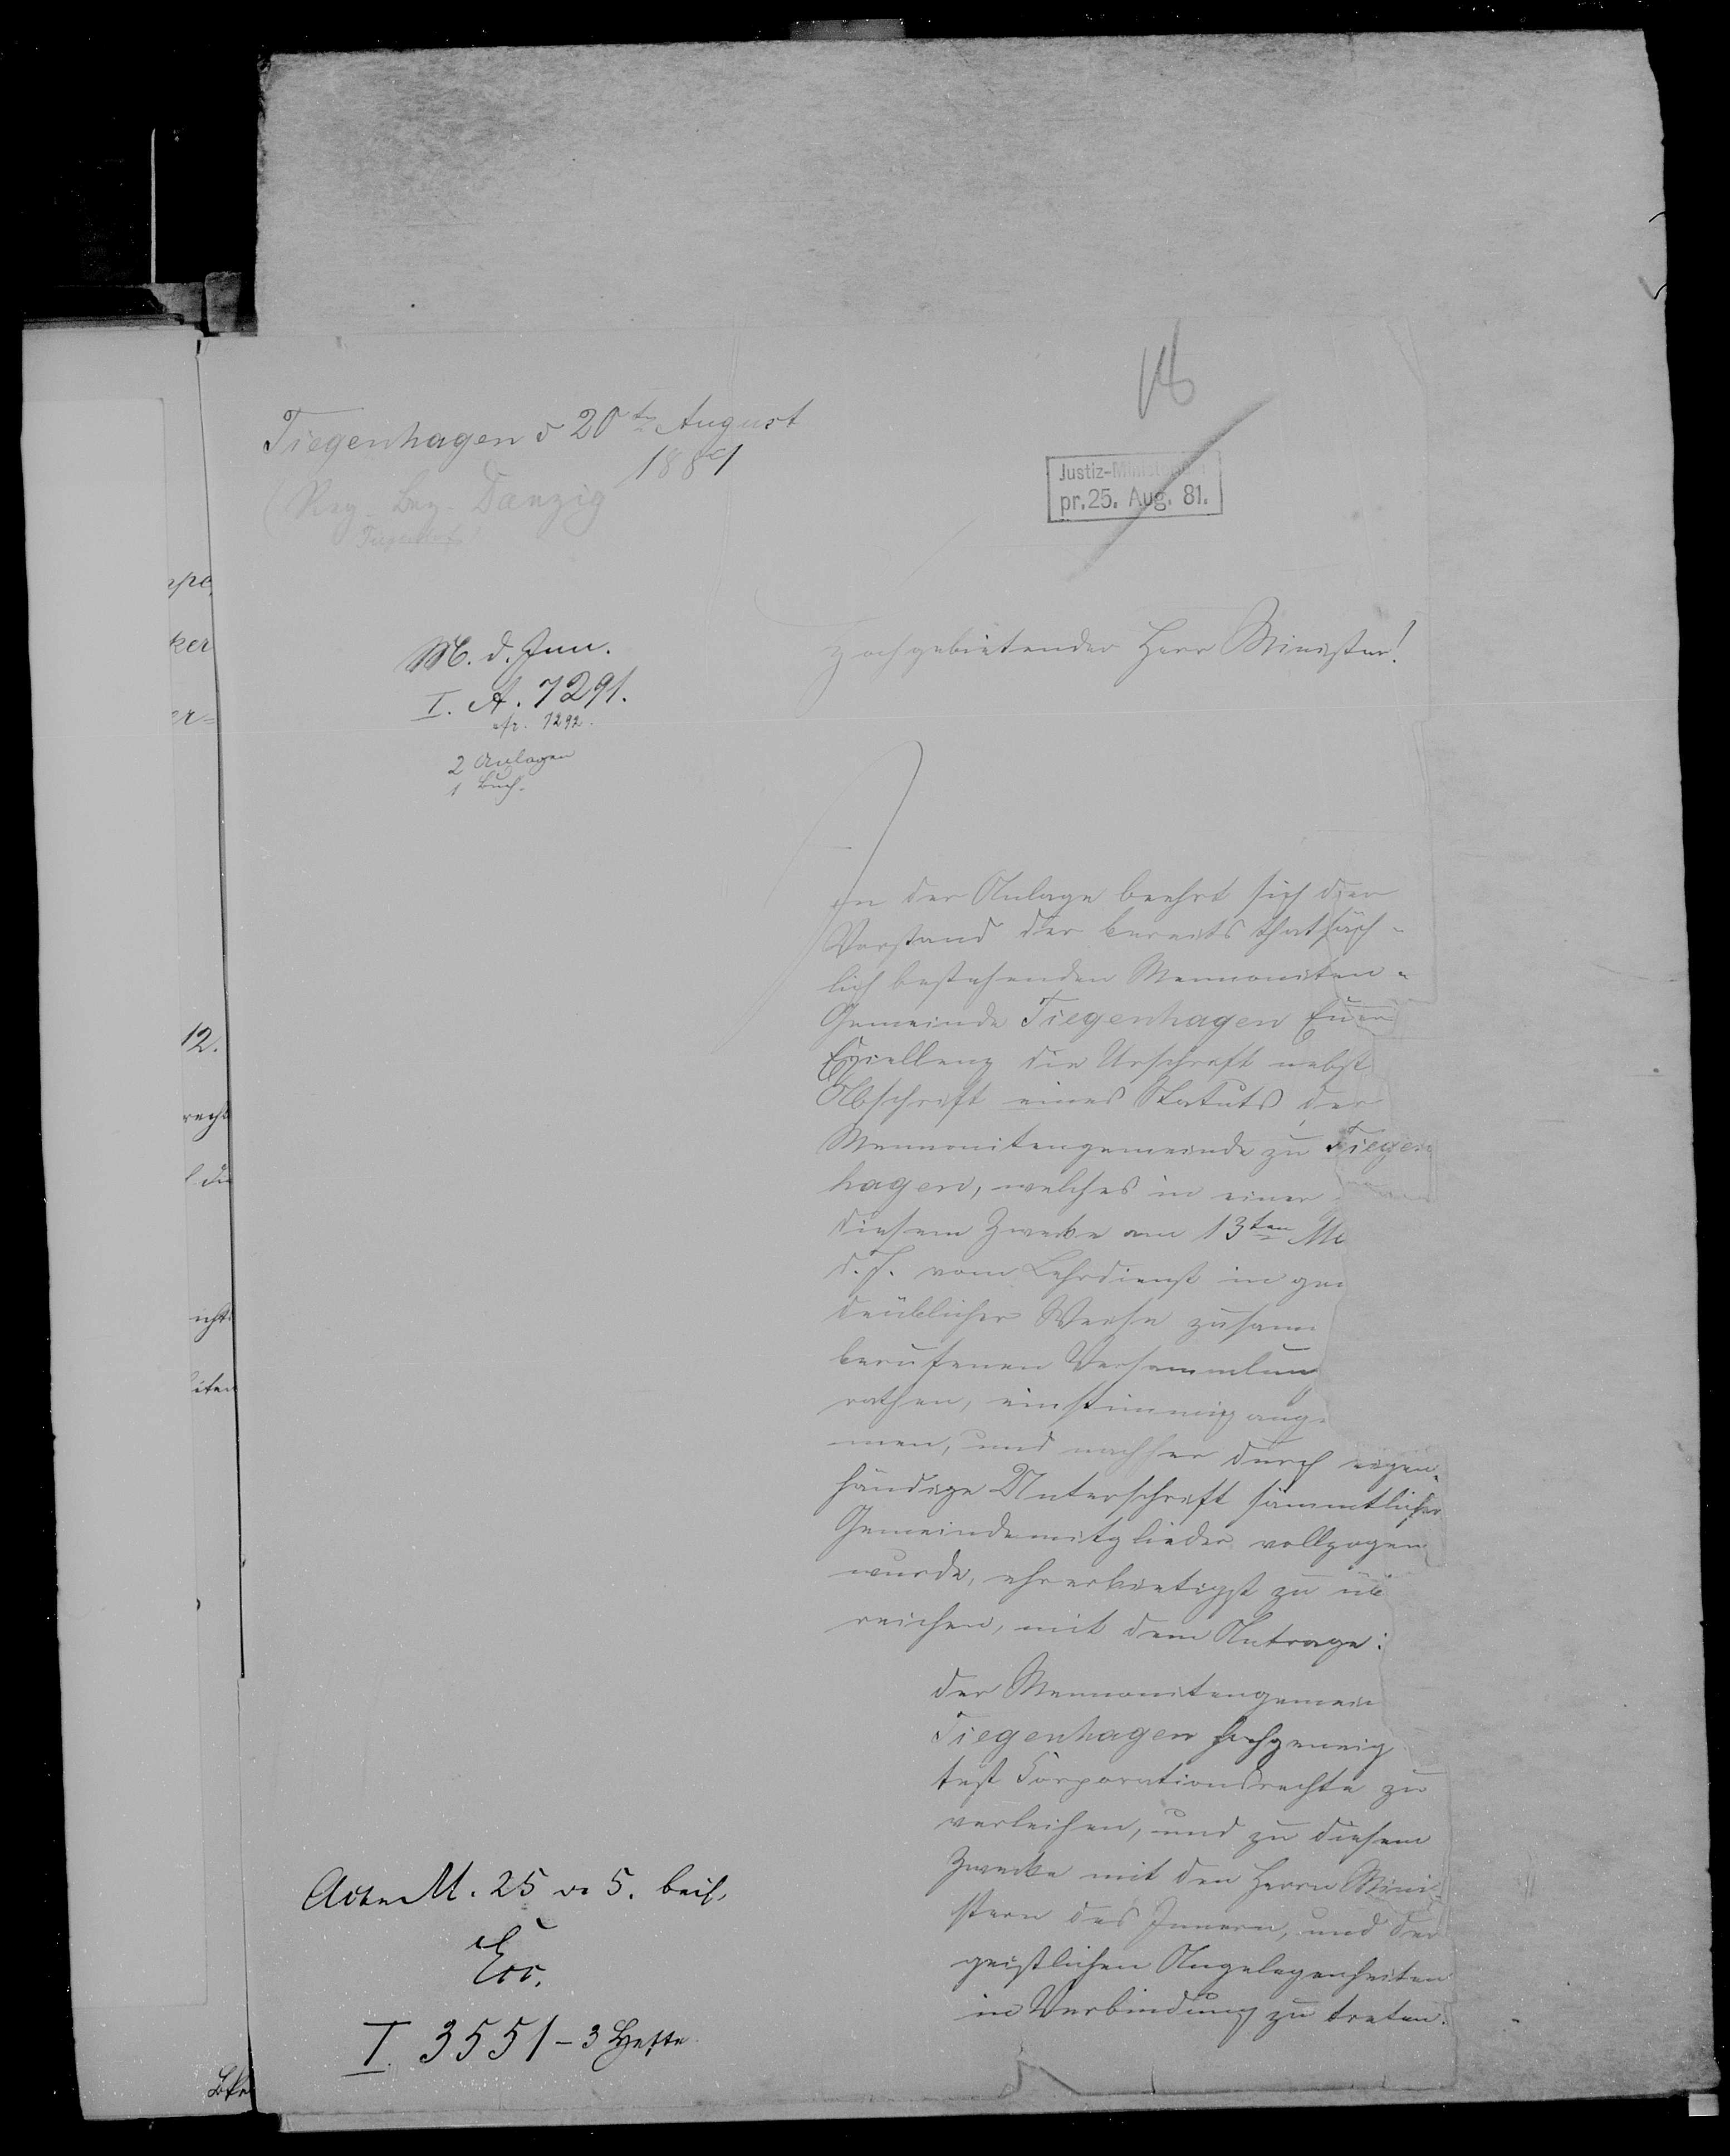 18
Tiegenhagen d 20ten August
1881
(Reg. Bez. Danzig
Justiz-Ministerium
pr. 25. Aug. 81.
M. d. Inn.
I. A. 7291.
cfr. 7292.
2 Anlagen
1 Buch.
Hochgebietender Herr Minister!
In der Anlage beehrt sich der
Vorstand der bereits thatsäch-
lich bestehenden Mennoniten-
Gemeinde Tiegenhagen Euer
Excellenz die Urschrift nebst
Abschrift eines Statuts der
Mennonitengemeinde zu Tiegen
hagen, welches in einer
diesem Zwecke am 13ten M
d. J. vom Lehrdienst in ge
deüblicher Weise zusam
berufenen Versammlung
rathen, einstimmig ange
men, und nachher durch eigen-
händige Unterschrift sämmtlicher
Gemeindemitglieder vollzogen
wurde, ehrerbietigst zu üb
reichen, mit dem Antrage:
der Mennonitengemein
Tiegenhagen hochgeneig
test Corporationsrechte zu
verleihen, und zu diesem
Zwecke mit den Herrn Mini-
stern des Innern, und der
geistlichen Angelegenheiten
in Verbindung zu treten.
Acta M. 25 v. 5. beif.
I. 3551 - 3 Hefte
12.